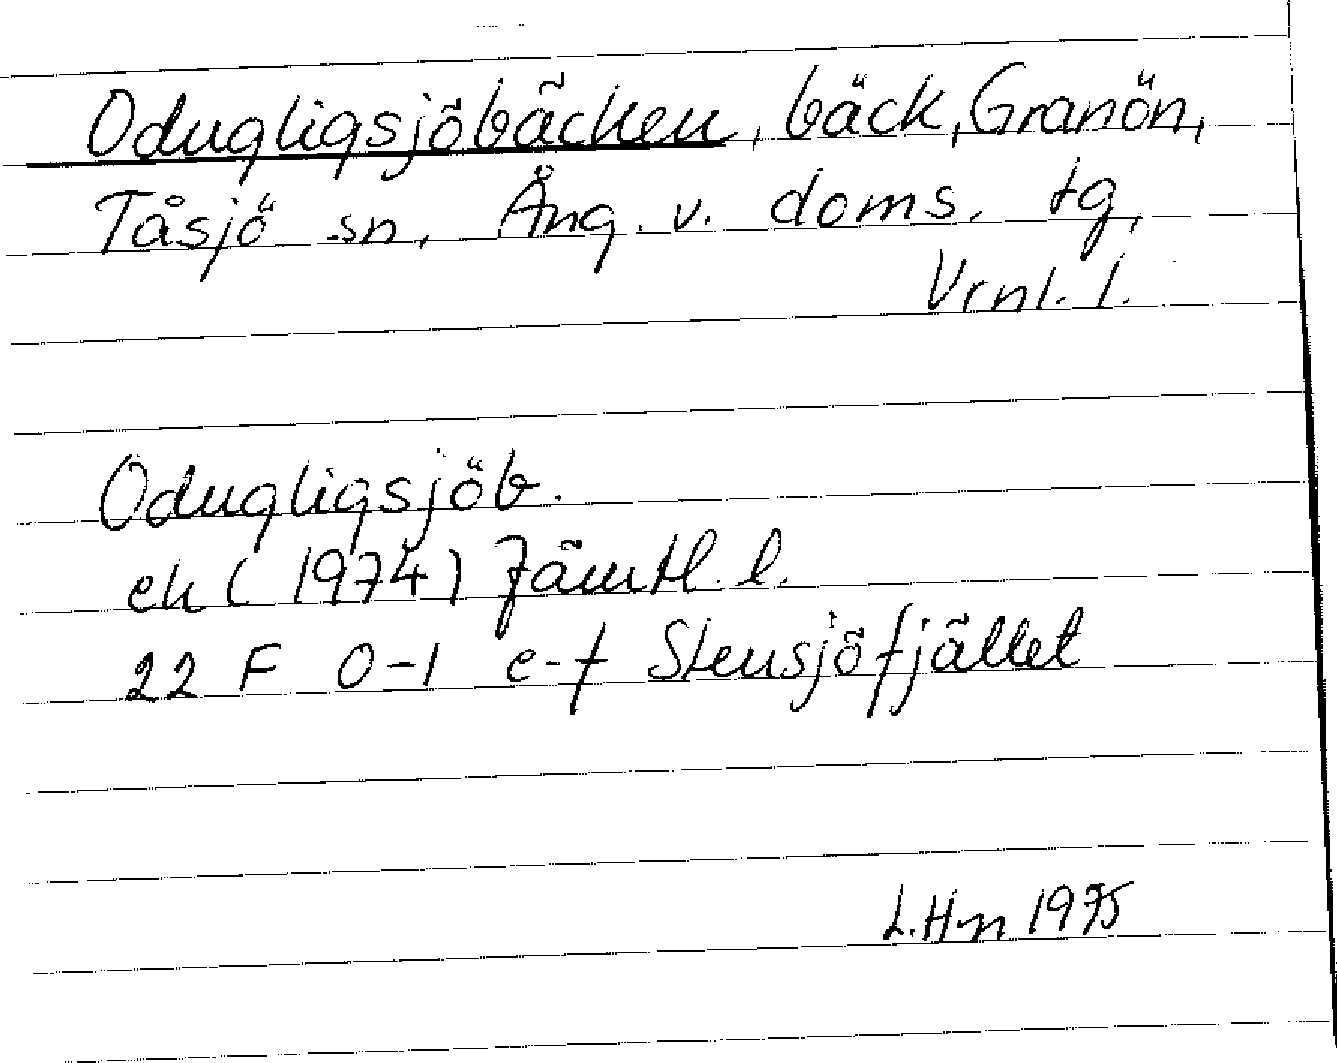 Odugligsjöbäcken, bäck, Granön,
Tåsjö sn, Ång. v. doms. tg,
Vrnl. l.
Odugligsjöb.
ek (1974) Jämtl. l.
22 F 0-1 e-f Stensjöfjället
L. Hn 1975